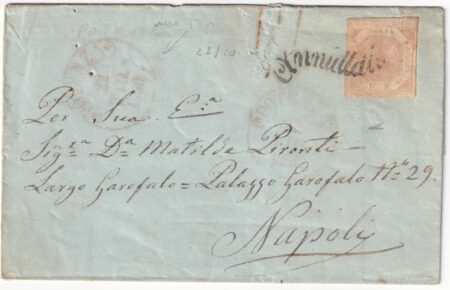 22/10
Annullato
Per Sua E.ª
Sig.ª D.ª Matilda Pironti
Largo Garofalo = Palazzo Garofalo N.º 29.
Napoli